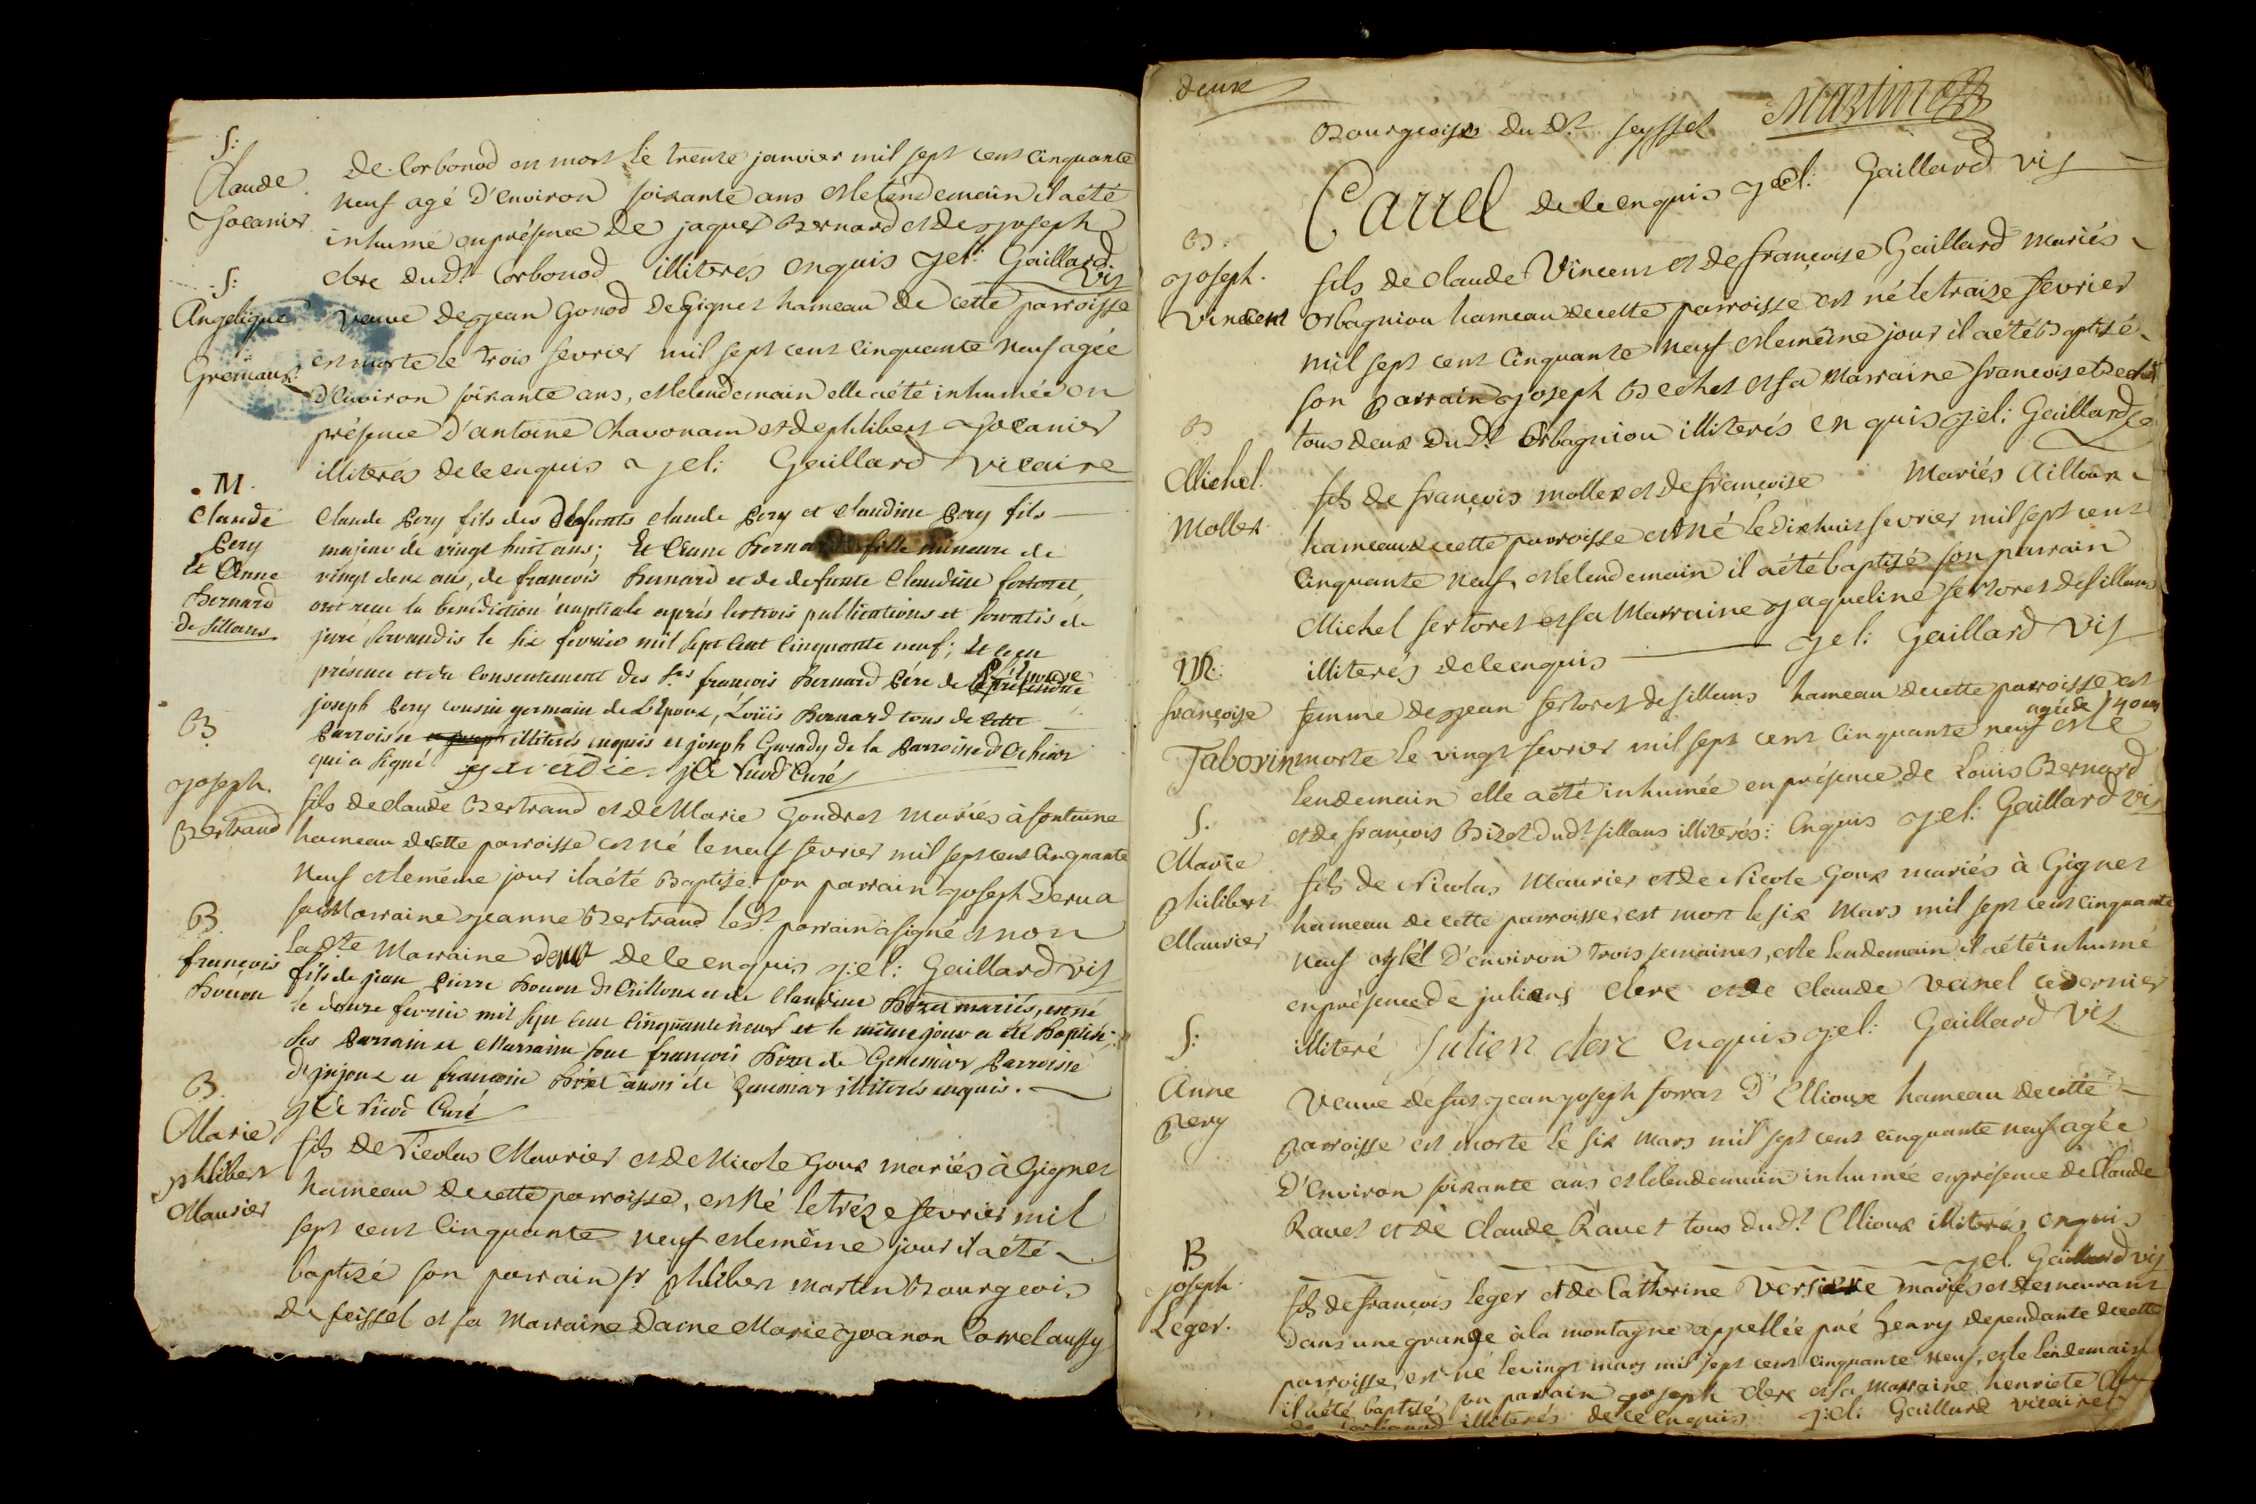 S:
Claude
Jocanier
De Corbonod on mort le trente janvier mil sept cent cinquante
neuf agé d'environ soixante ans et le lendemain il a été
inhumé en présence de jaques Bernard et de joseph
clerc du dt Corbonod illiterés enquis jel: Gaillard
vis
S:
Angelique
Gremaux
veuve de jean Gonod de Gignez hameau de cette parroisse
est morte le trois fevrier mil sept cent cinquante neuf agée
d'environ soixante ans, et le lendemain elle a été inhumée en
présence d'antoine Chavonain et de philibert Jocanier
illiterés de ce enquis jel: Gaillard vicaire
M.
Claude
Pery
Et Anne
Bernard
de Sillans
Claude Pery fils des defunts Claude Pery et Claudine Pery fils
majeur de vingt huit ans; Et Anne Bernard fille mineure de
vingt deux ans, de francois Bernard et de defunte Claudine fertoret,
ont recu la bénédiction nuptiale aprés les trois publications et servatis de
jure servandis le six fevrier mil sept cent cinquante neuf; Et ce en
présence et du consentement des Srs francois Bernard Pére de l'Epouse
joseph Pery cousin germain de l'Epoux, Loüis Bernard tous de cette
Parroisse illiterés enquis et joseph Gurady de la Parroisse d'
qui a signé jel Curé
B
joseph.
Bertrand
fils de claude Bertrand et de Marie Gondret mariés à fontaine
hameau de cette parroisse est né le neuf fevrier mil sept cent cinquante
neuf et le même jour il a été Baptisé son parrain joseph Derua
sa Marraine jeanne Bertrand le dt. parrain a signé et non
la dte Marraine derua de ce enquis jel: Gaillard vis
B.
francois
Bouon
fils de jean Pierre Bouon d' et de Claudine Bizet mariés, est né
le douze fevrier mil sept cent cinquante neuf et le même jour a été Baptisé:
Ses Parrain et Marraine sont francois Bizet de Genemiaz Parroisse
d'injoux et francoise Bizet aussi de illiterés enquis.
jel Curé
B.
Marie
philibert
Maurier
fils de Nicolas Maurier et de Nicole Goux mariés à Gignez
hameau de cette parroisse, est né le tréze fevrier mil
sept cent cinquante neuf et le même jour il a été
baptisé son parrain sr philibert martin Bourgeois
de seissel et sa marraine Dame Marie jeanon aussy
deux
Bourgeoise du dt seyssel Martinet
Carrel de ce enquis jel: Gaillard vis
B:
joseph.
Vincent
fils de claude Vincent et de françoise Gaillard mariés
Orbagniou hameau de cette parroisse est né le traize fevrier
mil sept cent cinquante neuf et le même jour il a été Baptisé
son parrain joseph Bechet et sa marraine francoise Bechet
tous deux du dt Orbagniou illiterés enquis jel: Gaillard
B
Michel.
Mollex
fils de françois mollex et de françoise mariés
hameau de cette parroisse est né le dix huit fevrier mil sept cent
cinquante neuf, et le lendemain il a été baptisé son parrain
Michel fertoret et sa Marraine jaqueline fertoret de sillans
illiterés de ce enquis jel: Gaillard vis
M:
françoise
Taborin
femme de jean fertoret de sillans hameau de cette parroisse est
agée de 40 ans
morte le vingt fevrier mil sept cent cinquante neuf et le
lendemain elle a été inhumée en présence de Louis Bernard
et de françois Bizet du dt sillans illiterés: enquis jel: Gaillard vis
S.
Marie
philibert
Maurier
fils de Nicolas Maurier et de Nicole Goux mariés à Gignez
hameau de cette parroisse, est mort le six mars mil sept cent cinquante
neuf agé d'environ trois semaines, et le lendemain il a été inhumé
en présence de julien clerc et de claude vanel ce dernier
illiteré Julien clerc enquis jel: Gaillard vis
S:
Anne
Pery
Veuve de fut jean joseph forrat d'Ellioux hameau de cette
parroisse est morte le six mars mil sept cent cinquante neuf agée
d'environ soixante ans et le lendemain inhumée en présence de Claude
Ravet et de claude Ravet tous du dt. Ellioux illiterés enquis
jel. Gaillard vis
B
joseph
Leger.
fils de françois Leger et de Catherine mariés et demeurant
dans une grange à la montagne appellée pré henry dependante de cette
parroisse, est né le vingt mars mil sept cent cinquante neuf, et le lendemain
il a été baptisé son parrain joseph clerc et sa marraine henriete
de Corbonod illiterés de ce enquis jel: Gaillard vicaire